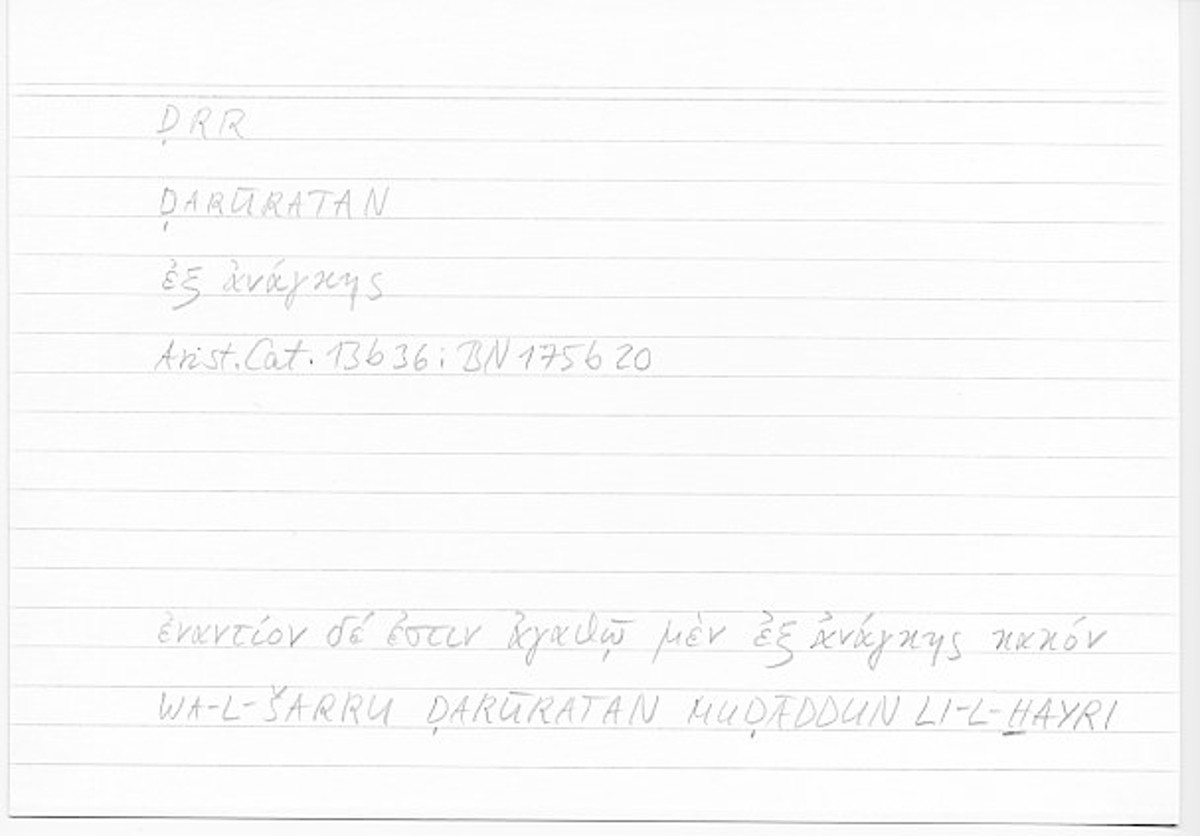 ḌRR
ḌARŪRATAN
ἐξ ἀνάγκης
Arist. Cat. 13b36; BN 175b20
ἐναντίον δέ ἐστιν ἀγαθῷ μὲν ἐξ ἀνάγκης κακόν
WA-L-ŠARRU ḌARŪRATAN MUḌĀDDUN LI-L-H̱AYRI